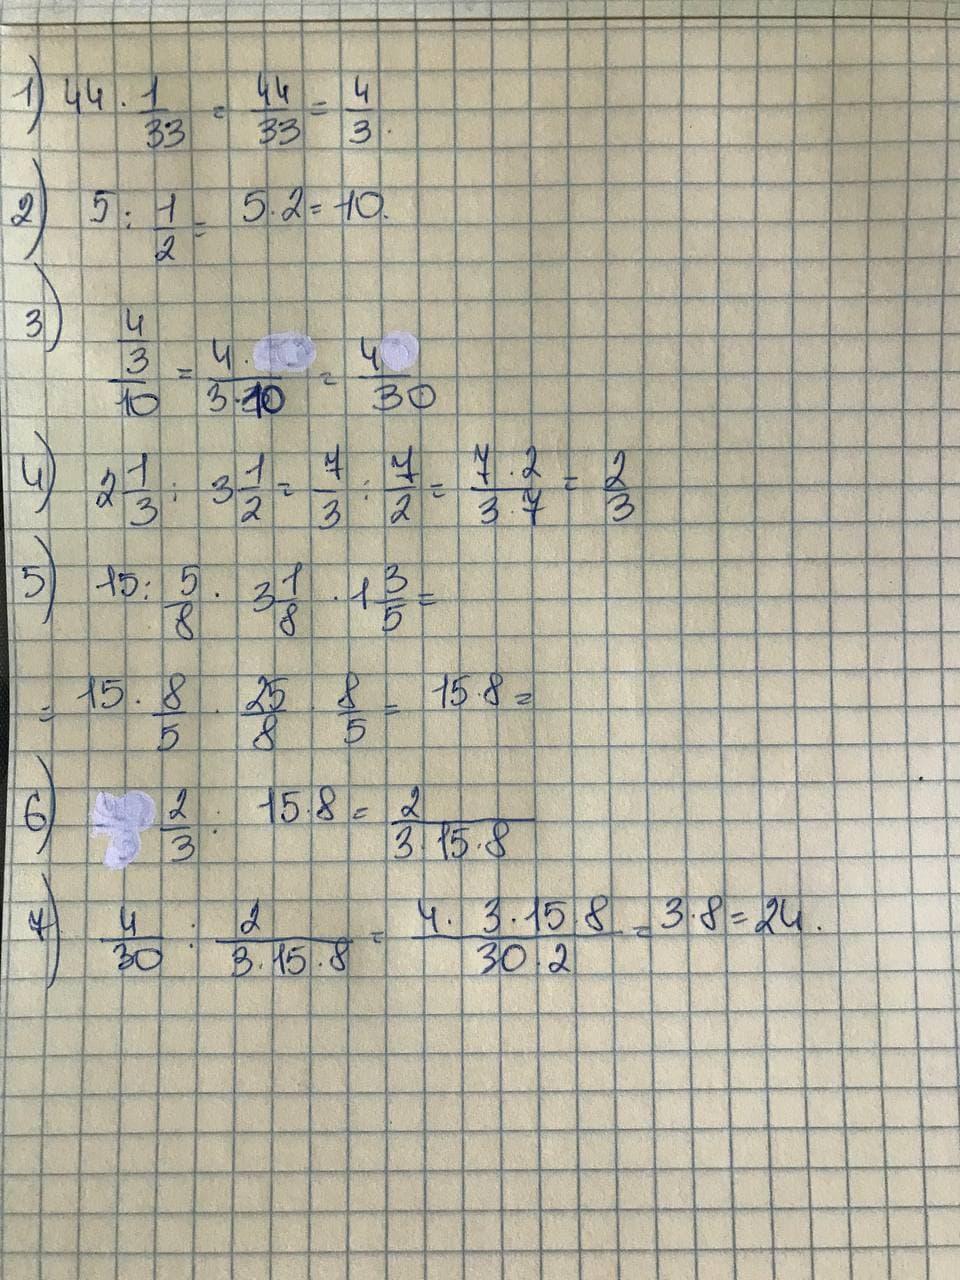 1) 44 · 1/33 = 44/33 = 4/3.
2) 5 : 1/2 = 5 · 2 = 10.
3) (4/3)/10 = 4/(3 · 10) = 4/30
4) 2 1/3 : 3 1/2 = 7/3 : 7/2 = (7 · 2)/(3 · 7) = 2/3
5) 15 : 5/8 · 3 1/8 · 1 3/5 =
= 15 · 8/5 · 25/8 · 8/5 = 15 · 8 =
6) 2/3 : 15 · 8 = 2/(3 · 15 · 8)
7) 4/30 : 2/(3 · 15 · 8) = (4 · 3 · 15 · 8)/(30 · 2) = 3 · 8 = 24.